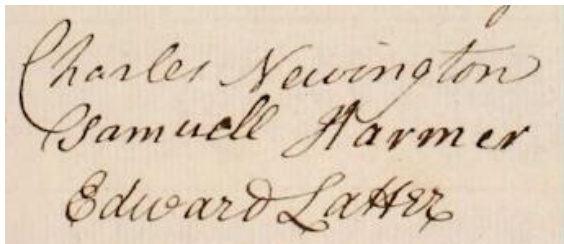 Charles Newington
Samuell Harmer
Edward Latter